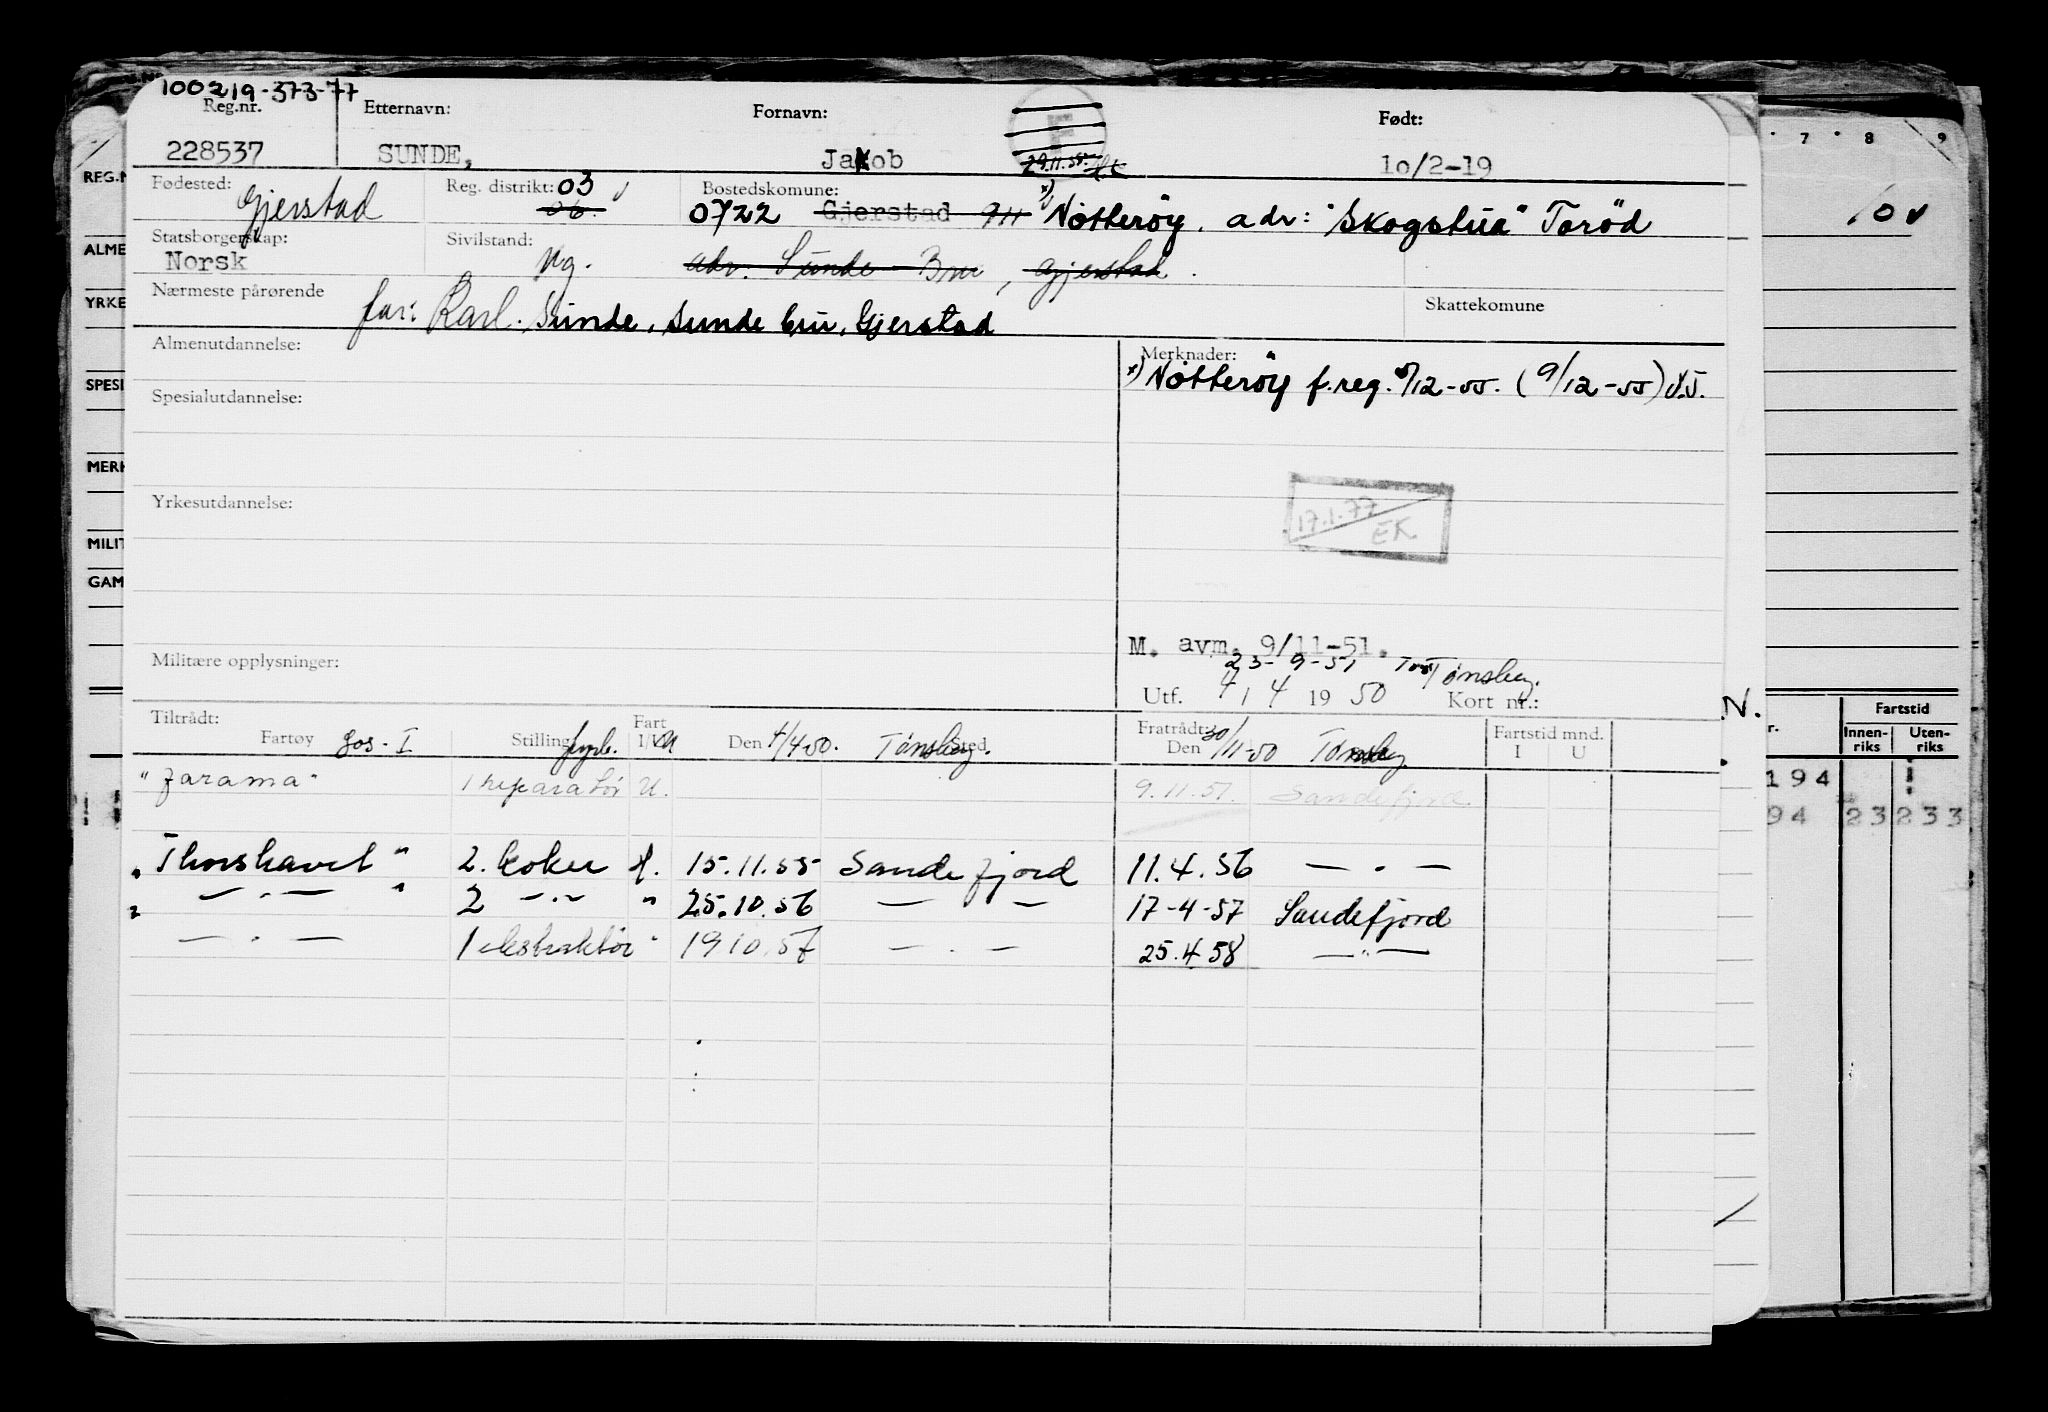 100219-373-77
Reg.nr. Etternavn: Fornavn: Født:
228537 SUNDE, Jakob 29.11.55. 10/2-19
Fødested: Gjerstad Reg. distrikt: 03 06. Bostedskomune: 0722 Gjerstad 911 x) Nøtterøy. adr: "Skogstua" Torød
Statsborgerskap: Norsk Sivilstand: Ug. adr. Sunde Bru, Gjerstad.
Nærmeste pårørende far: Karl. Sunde, Sunde bru, Gjerstad Skattekomune
Almenutdannelse: Merknader:
x) Nøtterøy f.reg. 8/12-55. (9/12-55)
Spesialutdannelse:
Yrkesutdannelse:
17.1.77
EK
M. avm. 9/11-51.
Militære opplysninger: 23-9-51 Tønsberg.
Utf. 4/4 1950 Kort nr.:
Tiltrådt: Fart Fratrådt: Fartstid mnd.
Fartøy Jos-I Stilling I/U U Den 4/4-50. Tønsberg Sted. Den 30/11-50 Tønsberg I U
"Jarama" 1 reparatør U. 9.11.51. Sandefjord.
"Thorshavet" 2. koker H. 15.11.55 Sandefjord 11.4.56 — " —
" — " — " 2 — " — " 25.10.56 — " — 17-4-57 Sandefjord
— " — 1 ekstraktør " 19.10.57 — " — 25.4.58 — " —
REG.N
ALME
YRKE
SPESI
MERK
MILIT
GAM
7 8 9
10 v
N.
r. Fartstid
Innen-riks Uten-riks
194
94 23 233